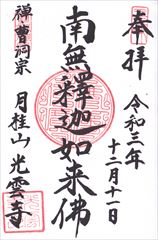 奉拝
令和三年
十二月十一日
南無釋迦如来佛
禅曹洞宗
月桂山光雲寺